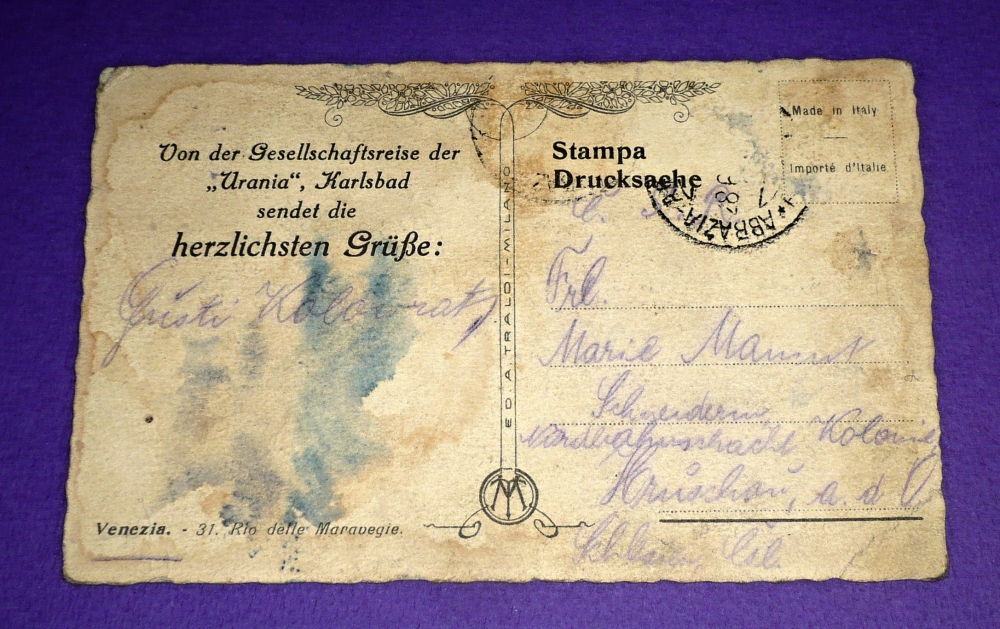 Von der Gesellschaftsreise der
„Urania“, Karlsbad
sendet die
herzlichsten Grüße:
Gusti Kolowrat
Venezia. - 31. Rio delle Maravegie.
ED. A. TRALDI - MILANO
Stampa
Drucksache
Made in Italy
—
Importé d'Italie
ABBAZIA
Frl.
Marie
Schneiderin
Nordbahnschacht Kolonie
Hruschau, a. d. O